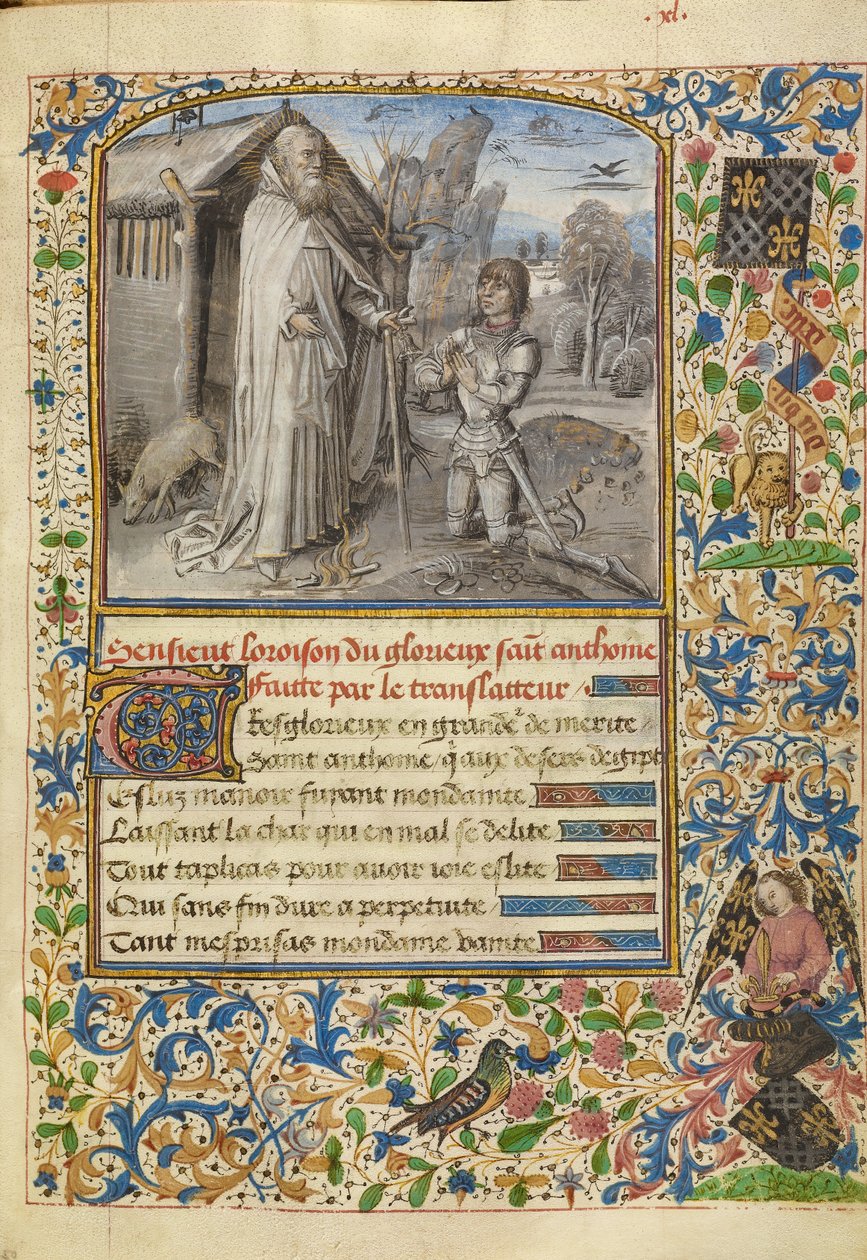 .xl.
Sensieut loroison du glorieux sait anthoine
faitte par le translatteur /.
Tresglorieux en grande de merite /
Saint anthoine / q̃ aux desers degipt
Esluz manoir fuyant mondainte
Laissant la char qui en mal se delite
Tout taplicas pour auoir ioie eslite
Qui sans fin dure a perpetuite /
Tant mesprisas mondaine vainte